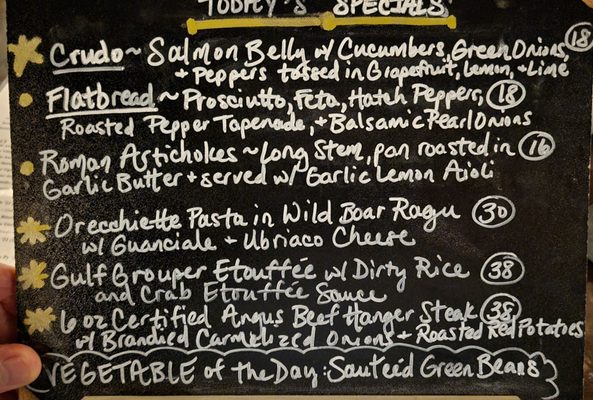 TODAY'S SPECIALS
Crudo ~ Salmon Belly w/ Cucumbers, Green Onions, 18
+ Peppers tossed in Grapefruit, Lemon, + Lime
Flatbread ~ Prosciutto, Feta, Hatch Peppers, 18
Roasted Pepper Tapenade, + Balsamic Pearl Onions
Roman Artichokes ~ Long Stem, pan roasted in 16
Garlic Butter + served w/ Garlic Lemon Aioli
Orecchiette Pasta in Wild Boar Ragu 30
w/ Guanciale + Ubriaco Cheese
Gulf Grouper Etouffée w/ Dirty Rice 38
and Crab Etouffée Sauce
6 oz Certified Angus Beef Hanger Steak 35
w/ Brandied Carmelized Onions + Roasted Red Potatoes
VEGETABLE of the Day: Sauteéd Green Beans